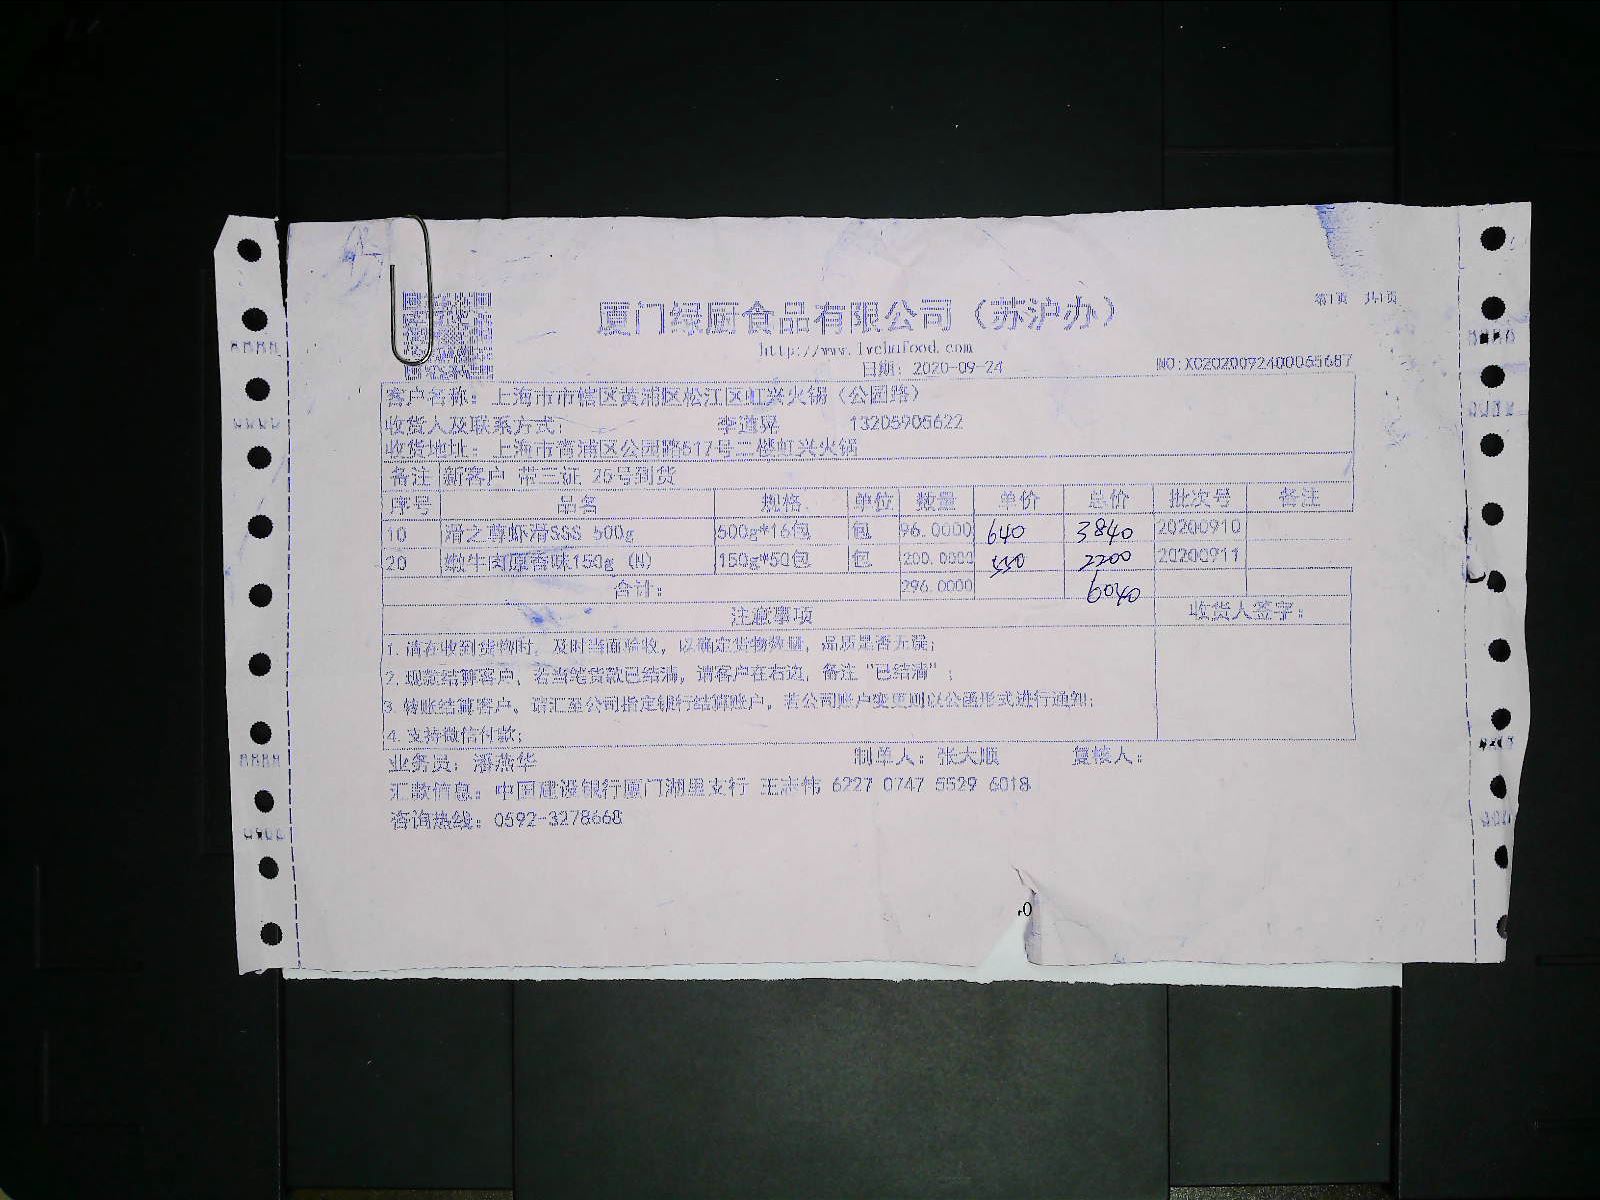 第1页 共1页
厦门绿厨食品有限公司（苏沪办）
http://www.lvchufood.com
日期：2020-09-24
NO:XC0202092400065687
客户名称：上海市市辖区黄浦区松江区虹兴火锅（公园路）
收货人及联系方式： 李道晃 13205905622
收货地址：上海市青浦区公园路517号二楼虹兴火锅
备注 新客户 带三证 25号到货
序号 品名 规格 单位 数量 单价 总价 批次号 备注
10 滑之尊虾滑SSS 500g 500g*16包 包 96.0000 640 3840 20200910
20 嫩牛肉原香味150g (N) 150g*50包 包 200.0000 550 2200 20200911
合计： 296.0000 6040
注意事项 收货人签字：
1. 请在收到货物时，及时当面验收，以确定货物数量，品质是否无误；
2. 现款结算客户，若当笔货款已结清，请客户在右边，备注“已结清”；
3. 转账结算客户，请汇至公司指定银行结算账户，若公司账户变更则以公函形式进行通知；
4. 支持微信付款；
业务员：潘燕华 制单人：张大顺 复核人：
汇款信息：中国建设银行厦门湖里支行 王志伟 6227 0747 5529 6018
咨询热线：0592-3278668